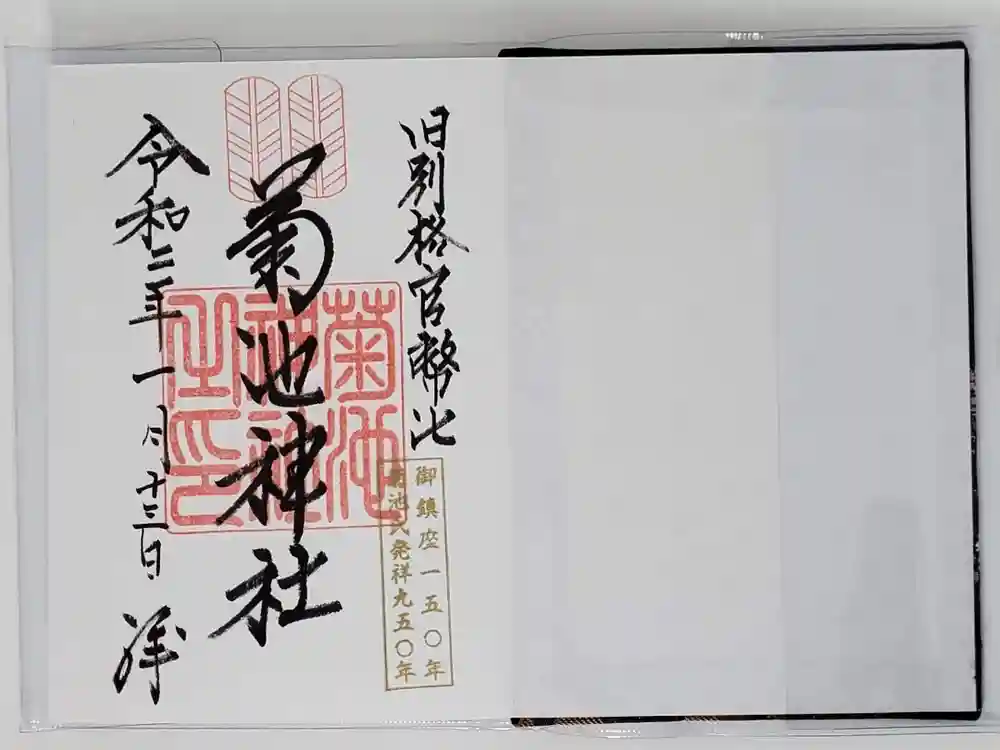 旧別格官幣社
御鎮座一五〇年
菊池氏発祥九五〇年
菊池神社
菊池
神社
之印
令和二年一月十三日 拝